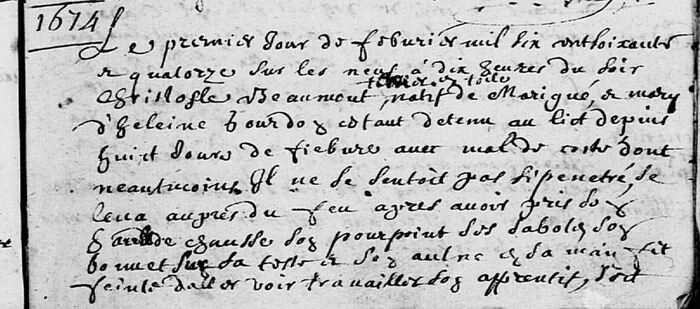 1674
Le premier Jour de feburier mil six cent soixante
et quatorze sur les neuf à dix heures du soir
tissier en toille
Christofle Beaumont natif de Marigné, et mary
d'heleine hourdoy estant detenu au lict depuis
huict Jours de fiebure auec mal de costé dont
neantmoins Il ne se sentoit pas si penetré, se
leua aupres du feu apres auoir pris soy
hault de chausse soy pourpoint ses sabots soy
bonnet sur sa teste et soy aulne en sa main fit
feinte daller voir trauailler soy apprentif,